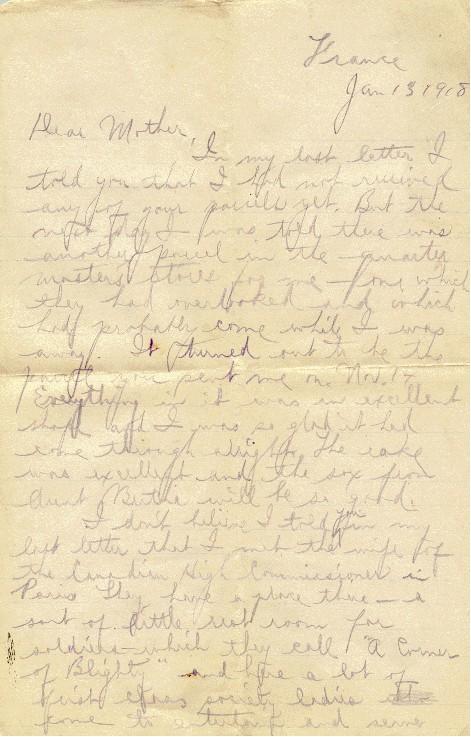 France
Jan 13 1918
Dear Mother,
In my last letter I
told you that I had not received
any of your parcels yet. But the
next day I was told there was
another parcel in the quarter
master's stores for me – one which
they had overlooked and which
had probably come while I was
away. It turned out to be the
parcel you sent me on Nov. 17
Everything in it was in excellent
shape and I was so glad it had
come through alright. The cake
was excellent and the sox from
Aunt Bertha will be so good.
I don't believe I told you in my
last letter that I met the wife of
the Canadian High Commissioner in
Paris They have a place there – a
sort of little rest room for
soldiers – which they call "A Corner
of Blighty" and have a lot of
first class society ladies
come to entertain and serve